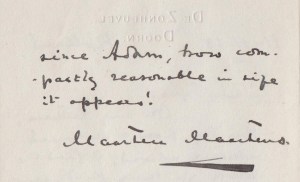 DE ZONHEUVEL
DOORN
since Adam, how com-
-pactly reasonable in size
it appears!
Maarten Maartens.